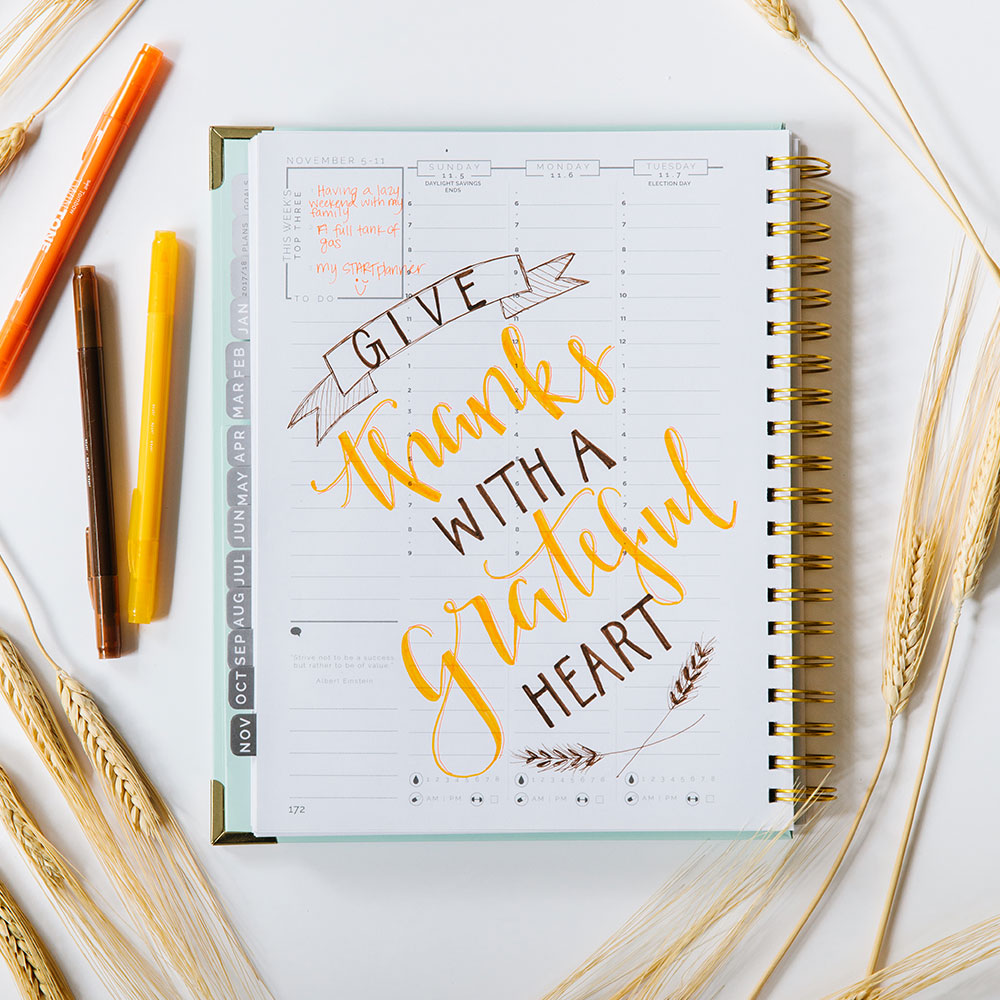 NOVEMBER 5-11
THIS WEEK'S
TOP THREE
Having a lazy
weekend with my
family
A full tank of
gas
my STARTplanner
TO DO
SUNDAY
11.5
DAYLIGHT SAVINGS
ENDS
MONDAY
11.6
TUESDAY
11.7
ELECTION DAY
GIVE
thanks
WITH A
grateful
HEART
"Strive not to be a success,
but rather to be of value."
Albert Einstein
172
1 2 3 4 5 6 7 8
1 2 3 4 5 6 7 8
1 2 3 4 5 6 7 8
AM | PM
AM | PM
AM | PM
2017/18 | PLANS | GOALS
JAN
FEB
MAR
APR
MAY
JUN
JUL
AUG
SEP
OCT
NOV